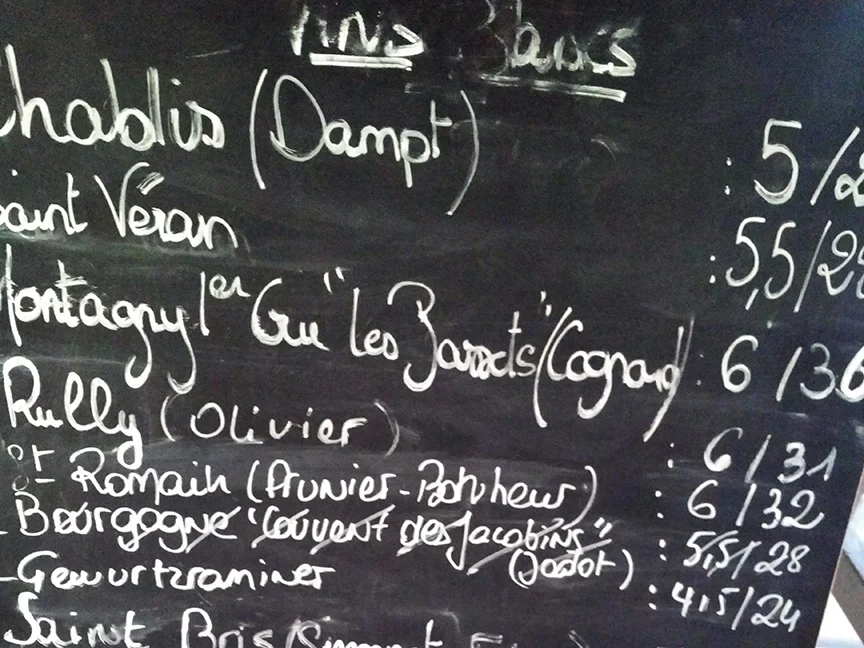 Vins Blancs
Chablis (Dampt) : 5/2
Saint Véran : 5,5/28
Montagny 1er Cru "les " (Cognard) : 6/36
Rully (Olivier) : 6/31
St Romain (Prunier-Bonheur) : 6/32
- Bourgogne "Couvent des Jacobins" (Jadot) : 5,5/28
- Gewurtzraminer : 4,5/24
Saint Bris